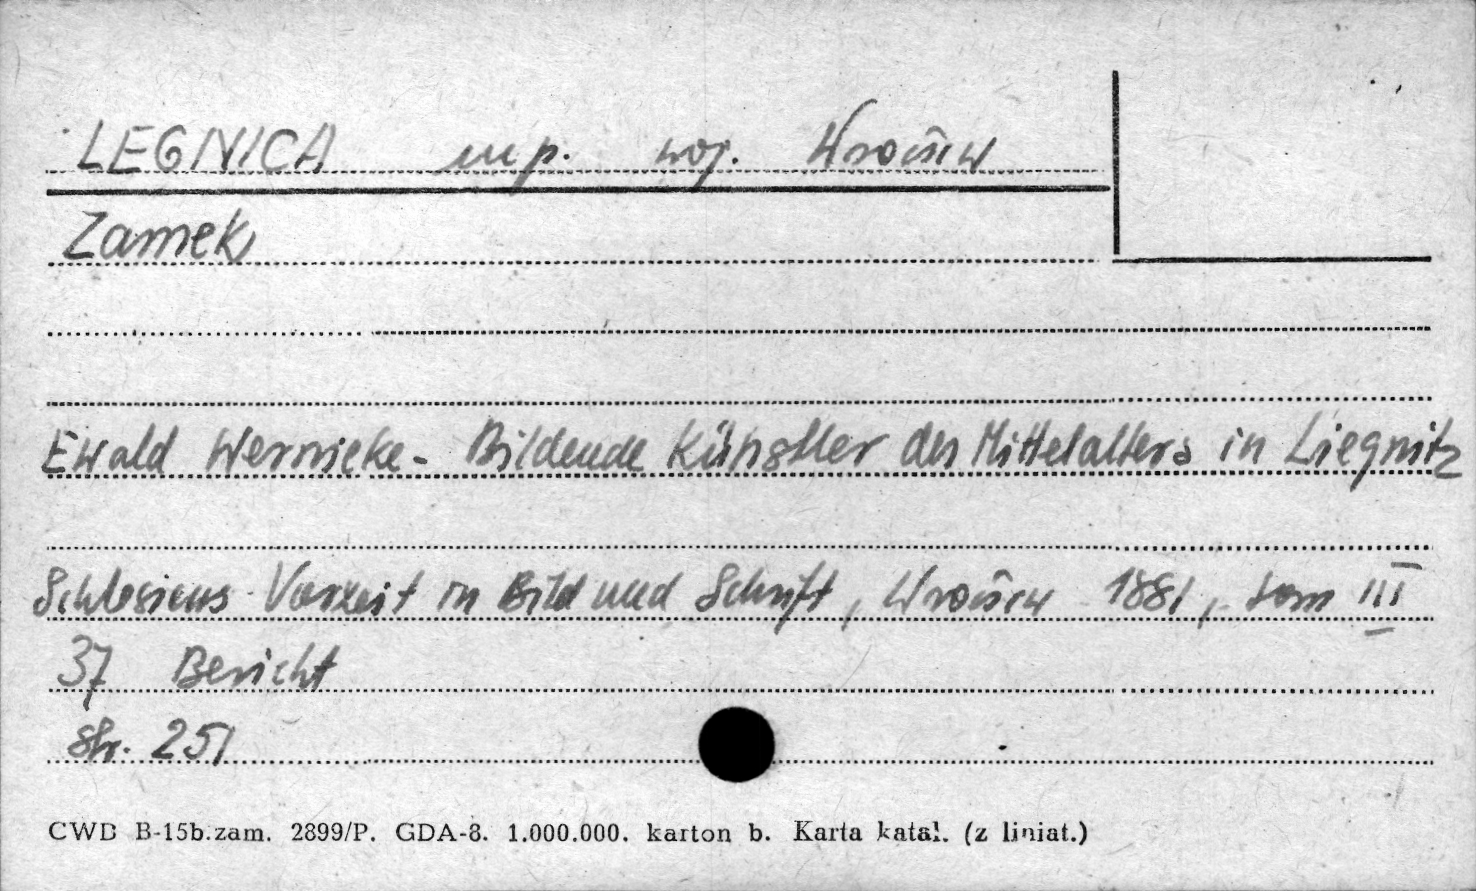 LEGNICA mp. woj. Wrocław
Zamek
Ewald Wernicke - Bildende Künstler des Mittelalters in Liegnitz
Schlesiens Vorzeit in Bild und Schrift, Wrocław 1881, tom III
37 Bericht
str. 251
CWD B-15b.zam. 2899/P. GDA-8. 1.000.000. karton b. Karta katal. (z liniat.)